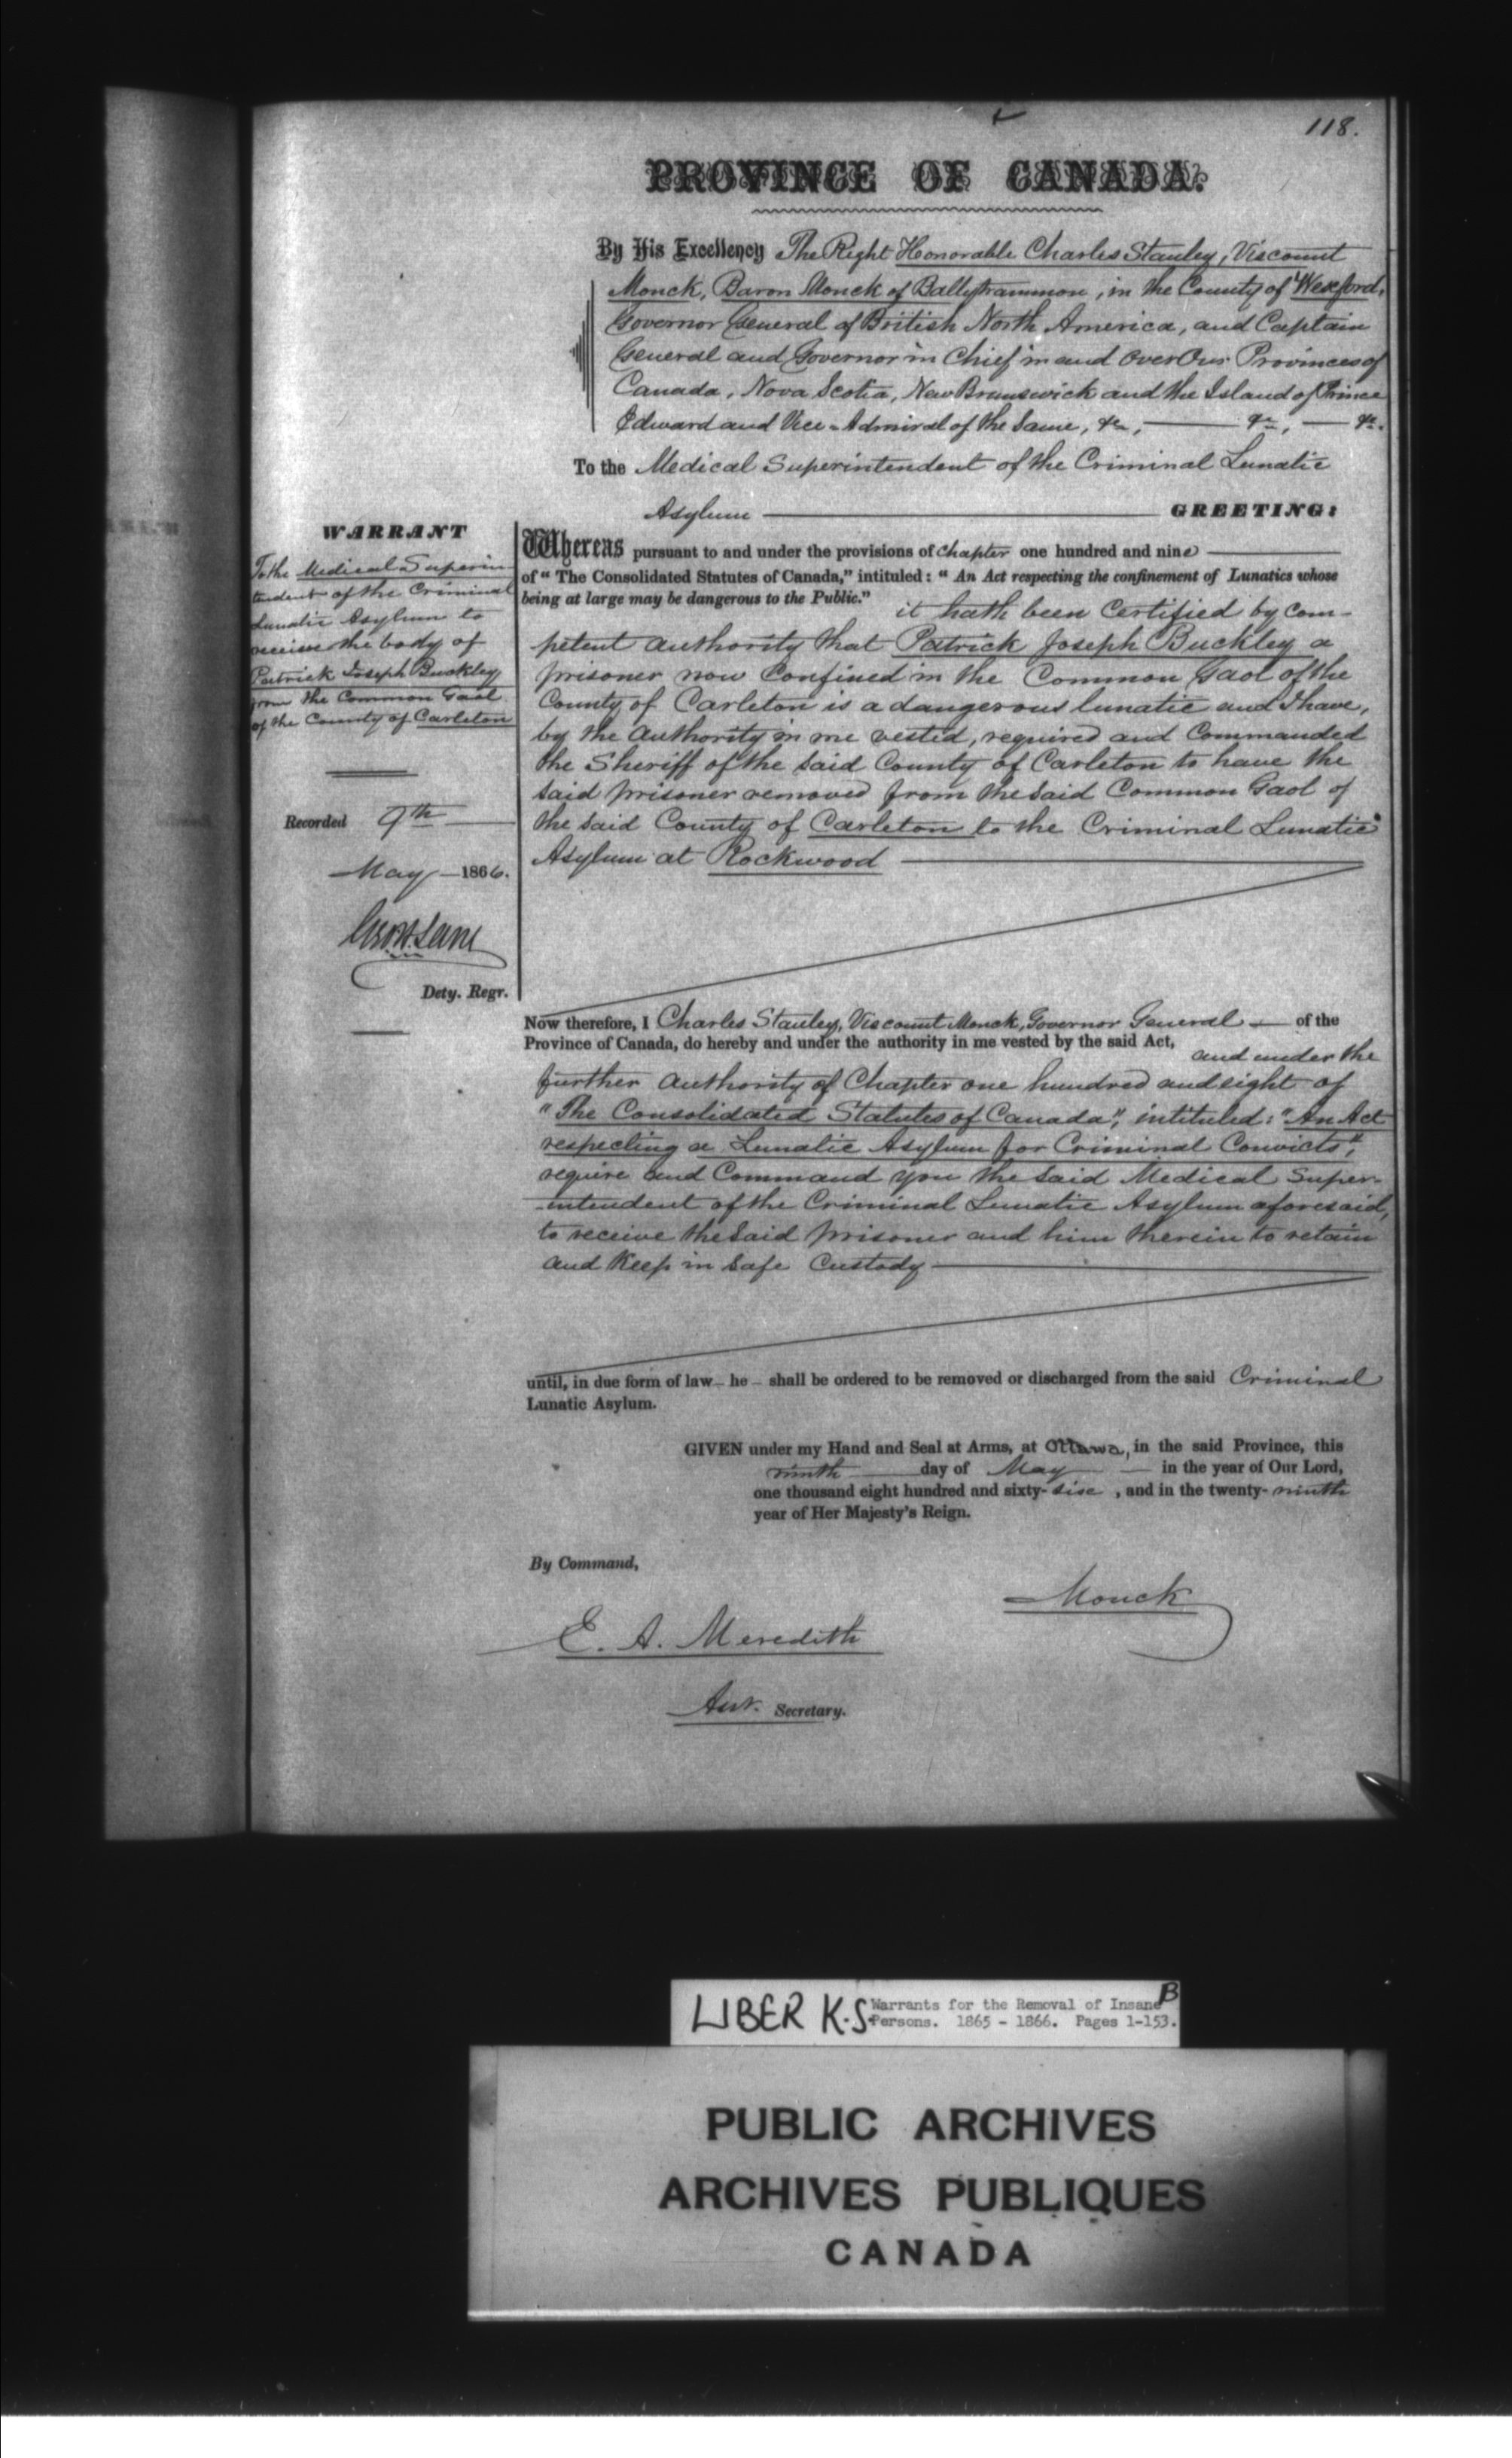 118.
PROVINCE OF CANADA.
By His Excellency The Right Honorable Charles Stanley, Viscount
Monck, Baron Monck of Ballytrammon, in the County of Wexford,
Governor General of British North America, and Captain
General and Governor in Chief in and over Our Provinces of
Canada, Nova Scotia, New Brunswick and the Island of Prince
Edward and Vice-Admiral of the Same, &c, &c, &c.
To the Medical Superintendent of the Criminal Lunatic
Asylum GREETING:
WARRANT
To the Medical Superin
tendent of the Criminal
Lunatic Asylum to
receive the body of
Patrick Joseph Buckley
from the Common Gaol
of the County of Carleton
Recorded 9th
May 1866.
Geo. H. Lane
Dety. Regr.
Whereas pursuant to and under the provisions of Chapter one hundred and nine
of "The Consolidated Statutes of Canada," intituled: "An Act respecting the confinement of Lunatics whose
being at large may be dangerous to the Public." it hath been Certified by Com-
petent Authority that Patrick Joseph Buckley a
prisoner now Confined in the Common Gaol of the
County of Carleton is a dangerous lunatic and I have,
by the Authority in me vested, required and Commanded
the Sheriff of the Said County of Carleton to have the
said prisoner removed from the Said Common Gaol of
the Said County of Carleton to the Criminal Lunatic
Asylum at Rockwood
Now therefore, I Charles Stanley, Viscount Monck, Governor General of the
Province of Canada, do hereby and under the authority in me vested by the said Act, and under the
further Authority of Chapter one hundred and eight of
"The Consolidated Statutes of Canada", intituled: "An Act
respecting a Lunatic Asylum for Criminal Convicts",
require and Command you the Said Medical Super-
intendent of the Criminal Lunatic Asylum aforesaid,
to receive the Said prisoner and him therein to retain
and Keep in Safe Custody
until, in due form of law he shall be ordered to be removed or discharged from the said Criminal
Lunatic Asylum.
GIVEN under my Hand and Seal at Arms, at Ottawa, in the said Province, this
ninth day of May in the year of Our Lord,
one thousand eight hundred and sixty-six, and in the twenty-ninth
year of Her Majesty's Reign.
By Command,
Monck
E. A. Meredith
Asst. Secretary.
LIBER K.S. Warrants for the Removal of Insane B
Persons. 1865 - 1866. Pages 1-153.
PUBLIC ARCHIVES
ARCHIVES PUBLIQUES
CANADA